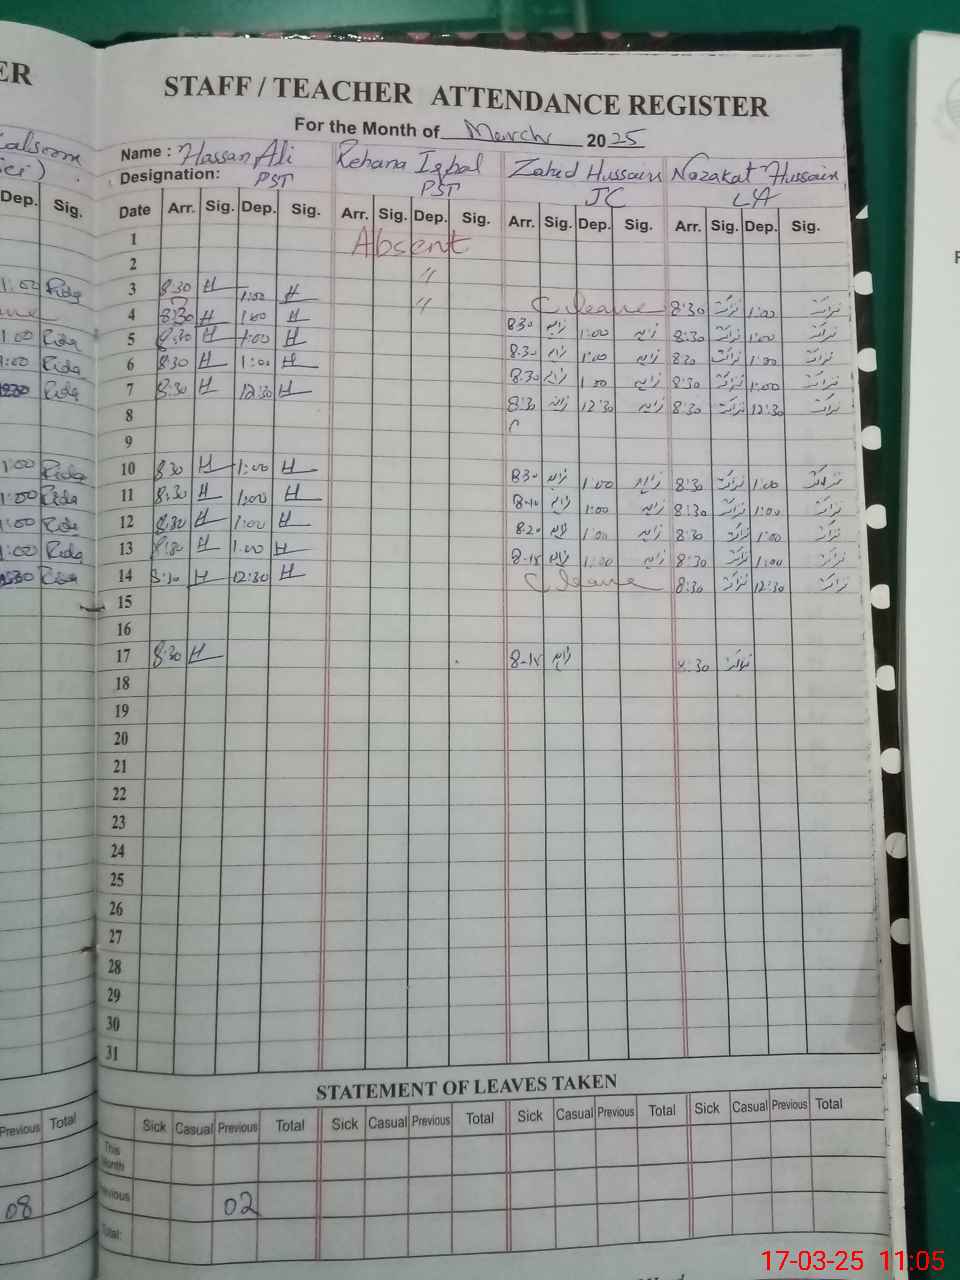 ER
STAFF / TEACHER ATTENDANCE REGISTER
For the Month of March 2025
Name : Hassan Ali Rehana Iqbal Zahid Hussain Nazakat Hussain
Designation: PST PST JC LA
Dep. Sig. Date Arr. Sig. Dep. Sig. Arr. Sig. Dep. Sig. Arr. Sig. Dep. Sig. Arr. Sig. Dep. Sig.
1 Absent
2 〃
3 8:30 H 1:00 H 〃 C leave 8:30 نزاکت 1:00 نزاکت
4 8:30 H 1:00 H 830 زاہد 1:00 زاہد 8:30 نزاکت 1:00 نزاکت
1:00 Rida 5 8:30 H 1:00 H 8:30 زاہد 1:00 زاہد 8:30 نزاکت 1:00 نزاکت
1:00 Rida 6 8:30 H 1:00 H 8:30 زاہد 1:00 زاہد 8:30 نزاکت 1:00 نزاکت
Rida 7 8:30 H 12:30 H 8:30 زاہد 12:30 زاہد 8:30 نزاکت 12:30 نزاکت
8
9
1:00 Rida 10 8:30 H 1:00 H 830 زاہد 1:00 زاہد 8:30 نزاکت 1:00 نزاکت
1:00 Rida 11 8:30 H 1:00 H 8-10 زاہد 1:00 زاہد 8:30 نزاکت 1:00 نزاکت
1:00 Rida 12 8:30 H 1:00 H 8-20 زاہد 1:00 زاہد 8:30 نزاکت 1:00 نزاکت
1:00 Rida 13 8:30 H 1:00 H زاہد 1:00 زاہد 8:30 نزاکت 1:00 نزاکت
Rida 14 8:30 H 12:30 H C leave 8:30 نزاکت 12:30 نزاکت
15
16
17 8:30 H زاہد 8:30 نزاکت
18
19
20
21
22
23
24
25
26
27
28
29
30
31
STATEMENT OF LEAVES TAKEN
Previous Total Sick Casual Previous Total Sick Casual Previous Total Sick Casual Previous Total Sick Casual Previous Total
This Month
08 Previous 02
Total:
17-03-25 11:05